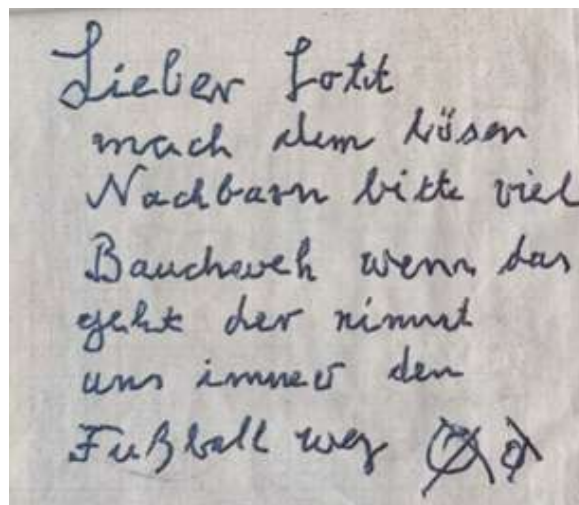 Lieber Gott
mach dem bösen
Nachbarn bitte viel
Bauchweh wenn das
geht der nimmt
uns immer den
Fußball weg